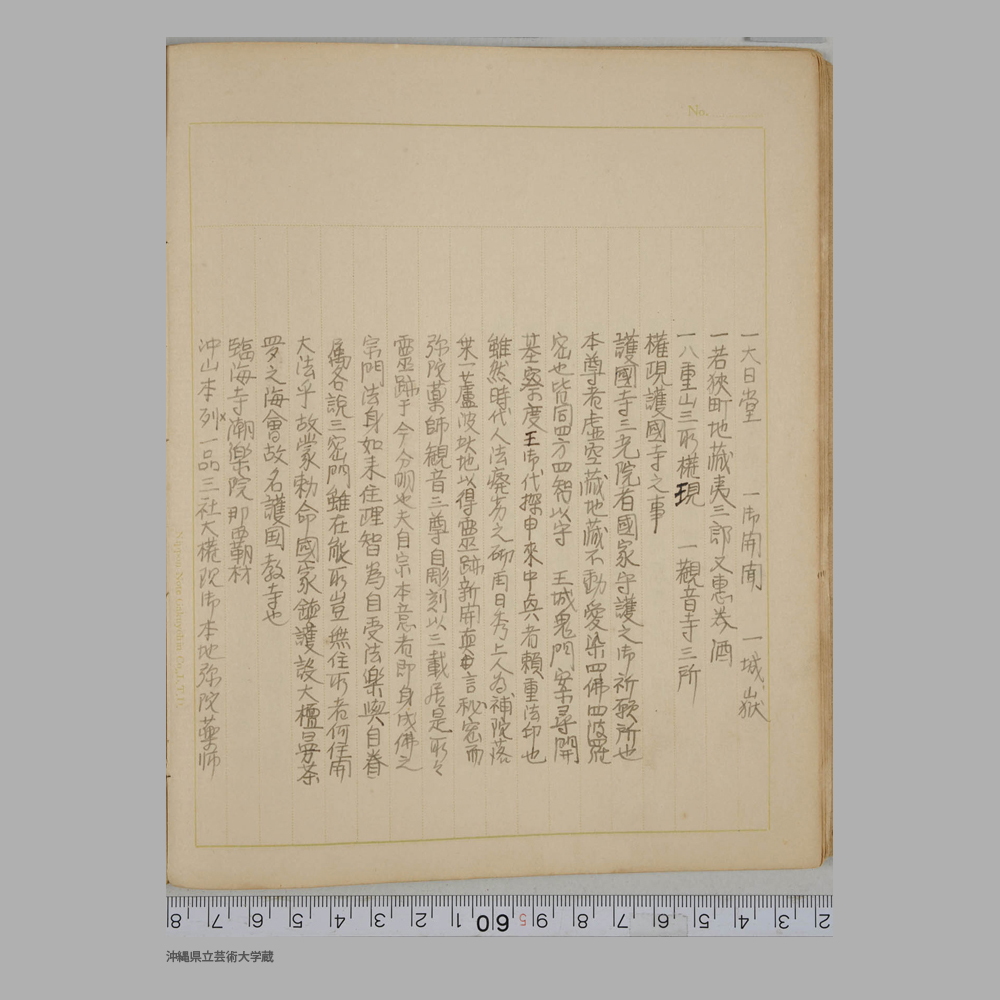 No.
一大日堂　一御開闻　一城嶽
一若狭町地藏夷三郎又惠美酒
一八重山三所權現　一觀音寺三所
權現護國寺之事
護國寺三光院者國家守護之御祈願所也
本尊者虚空藏地藏不動愛染四佛四波羅
密也皆同四方四智以守　王城鬼門案尋開
基察度王御代探申來中興者賴重法印也
雖然時代人法廢劣之砌南日秀上人為補院落
葉一蘆波於地以得靈跡新開真言秘密而
弥陀藥師觀音三尊自彫刻以三載居是所々
靈跡于今分明也夫自宗本意者即身成佛之
宗門法身如来住理智為自受法樂與自眷
属各說三密門雖在能所豈無住所者何住開
大法乎故蒙勅命國家鎮護設大檀曼荼
羅之海會故名護国教寺也
臨海寺潮樂院那覇村
沖山本列一品三社大権院御本地弥陀藥師
Nippon Note Gakuyohin Co., Ltd.
8 7 6 5 4 3 2 1 60 5 9 8 7 6 5 4 3 2
沖縄県立芸術大学蔵